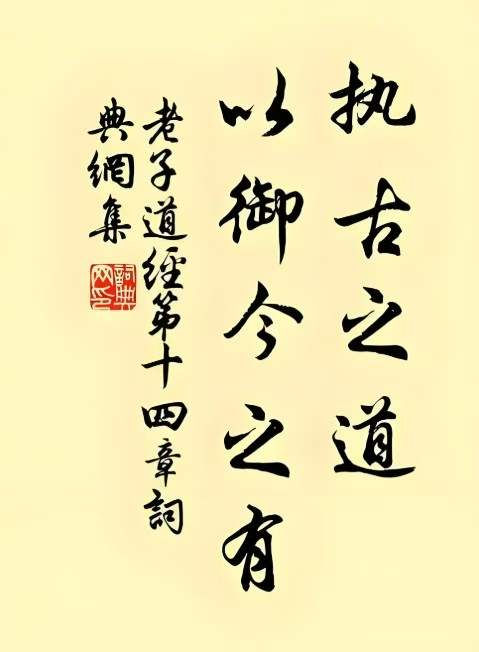 执古之道
以御今之有
老子道經第十四章詞
典網集
詞典网印